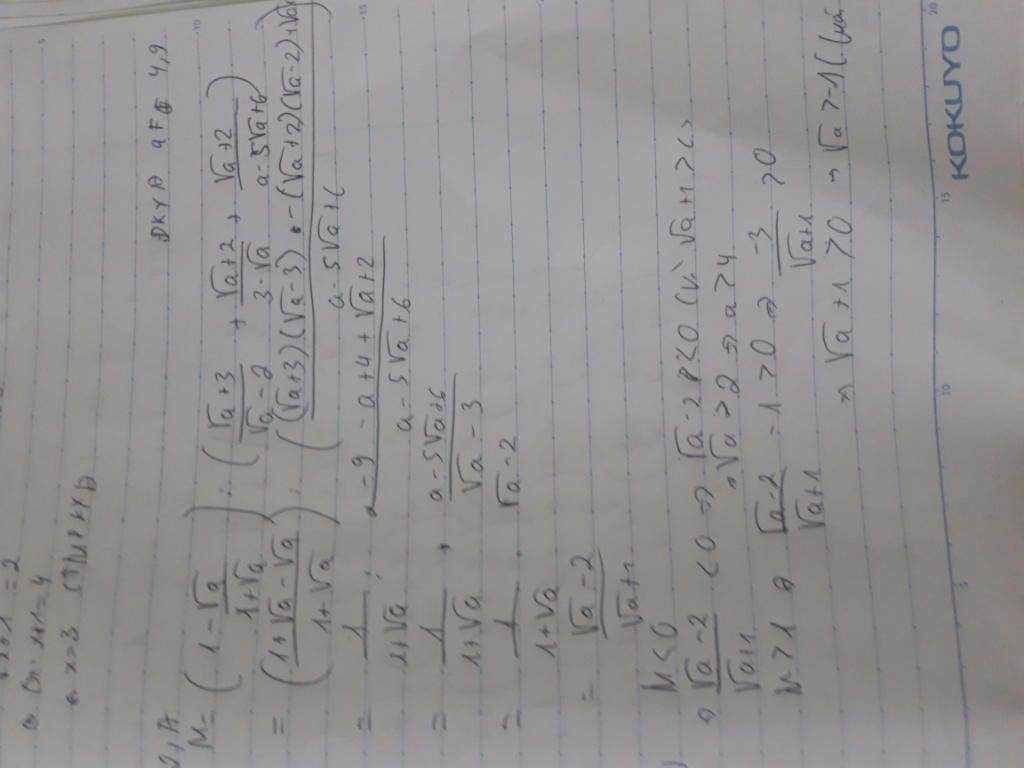 = 2
x+1=4
x=3 (TMĐKXĐ)
2, A
ĐKXĐ a ≠ 4,9
M = (1 - √a/(1+√a)) : ((√a+3)/(√a-2) + (√a+2)/(3-√a) + (√a+2)/(a-5√a+6))
= ((1+√a-√a)/(1+√a)) : ((√a+3)(√a-3) - (√a+2)(√a-2)+√a
a-5√a+6
= 1/(1+√a) : (a-9-a+4+√a+2)/(a-5√a+6)
= 1/(1+√a) . (a-5√a+6)/(√a-3)
= 1/(1+√a) . √a-2
= (√a-2)/(√a+1)
M<0
⇒ (√a-2)/(√a+1) <0 → √a-2 <0 (vì √a+1>0)
→ √a>2 → a>4
M>1 ⇒ (√a-2)/(√a+1) - 1 >0 ⇒ -3/(√a+1) >0
⇒ √a+1>0 → √a>-1 (luôn
5
10
15
5
10
15
20
KOKUYO